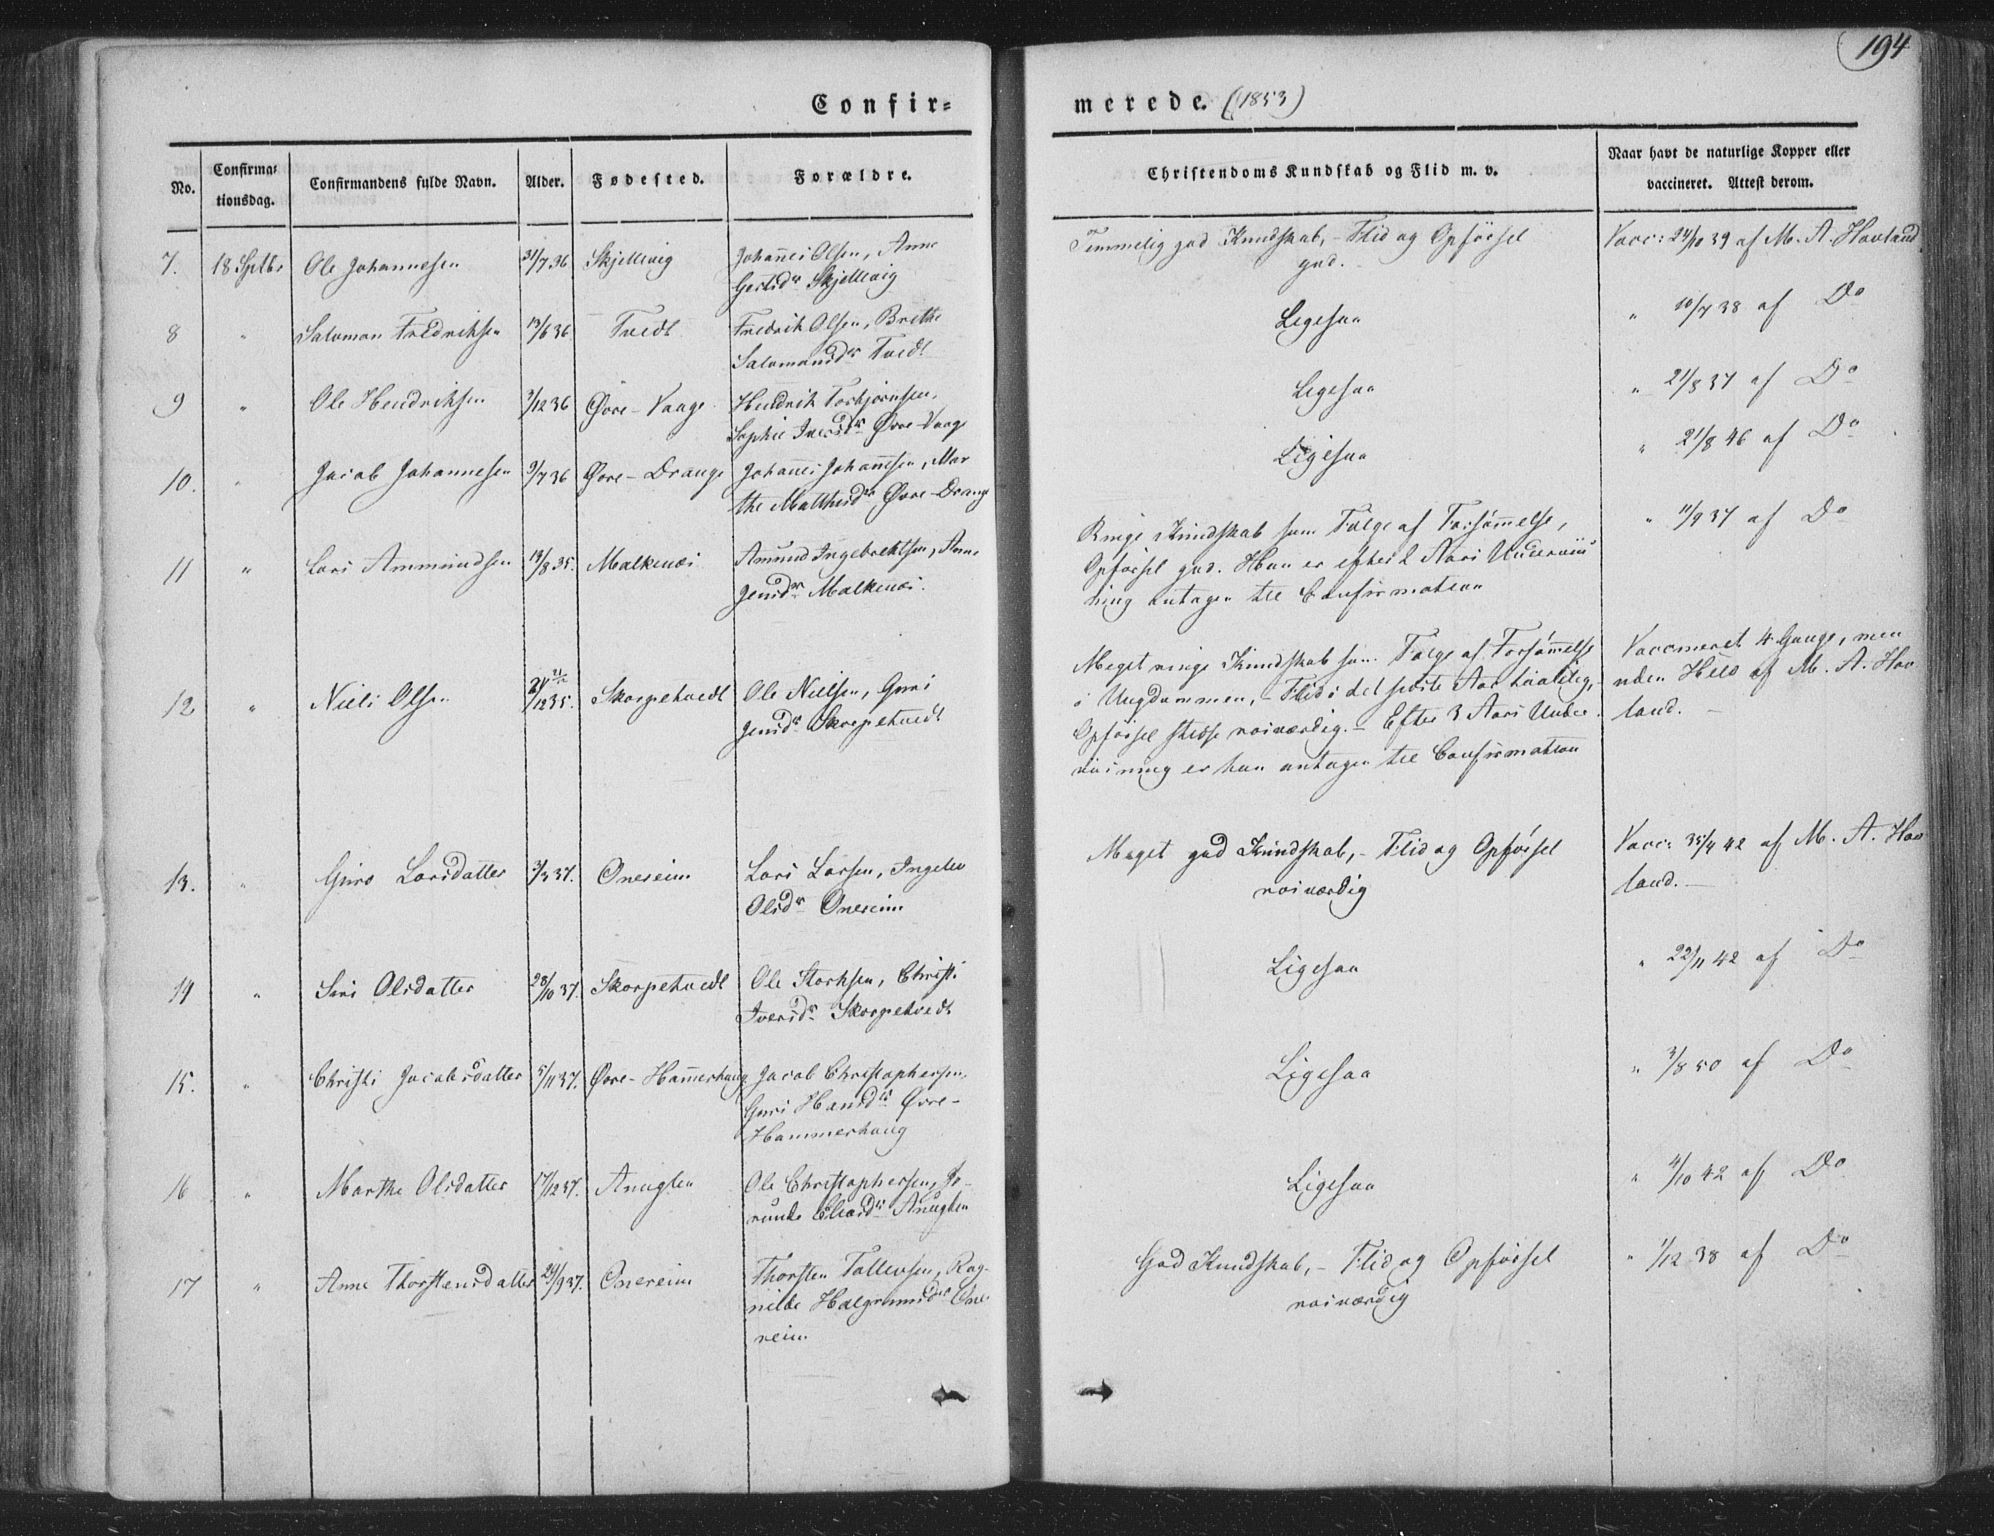 194
Confir-
merede. (1853)
No.
Confirma-
tionsdag.
Confirmandens fulde Navn.
Alder.
Fødested.
Forældre.
Christendoms Kundskab og Flid m. v.
Naar havt de naturlige Kopper eller
vaccineret. Attest derom.
7. 18 Septbr Ole Johannesen 31/7 36 Skjellevig Johanes Olsen, Anne
Gertsdr Skjellevig
Temmelig god Kundskab, – Flid og Opførsel
god.
Vacc: 24/10 39 af M. A. Havland
8 " Salomon Fredriksen 13/6 36 Tvedt Fredrik Olsen, Brithe
Salomonsdr Tvedt
Ligesaa
" 10/7 38 af Do
9 " Ole Hendriksen 3/12 36 Øvre-Vaage Hendrik Torbjørnsen,
Sophie Iversdr Øvre-Vaage
Ligesaa
" 21/8 37 af Do
10. " Jacob Johannesen 9/7 36 Øvre-Drange Johanes Johannesen, Mar
the Matthisdr Øvre-Drange
Ligesaa
" 21/8 46 af Do
11 " Lars Ammundsen 19/8 35. Malkenæs Amund Ingebrektsen, Anne
Jensdr Malkenæs.
Ringe Kundskab som Følge af Forsømmelse,
Opførsel god. Han er efter 2 Aars Underviis
ning antagen til Confirmation
" 11/9 37 af Do
12 " Niels Olsen 21/12 35. Skorpetvedt Ole Nielsen, Guri
Jensdr Skorpetvedt
Meget ringe Kundskab som Følge af Forsømmelse
i Ungdommen, – Flid i det sidste Aar taalelig,
Opførsel stedse roisværdig. – Efter 3 Aars Under
viisning er han antagen til Confirmation
Vaccineret 4 Gange, men
uden Held af M. A. Hav
land. –
13. " Guro Larsdatter 3/3 37. Onereim Lars Larsen, Ingebor
Olsdr Onereim
Meget god Kundskab, – Flid og Opførsel
roisværdig
Vacc: 35/4 42 af M. A. Hav
land. –
14 " Siri Olsdatter 28/10 37. Skorpetvedt Ole Storksen, Christi
Iversdr Skorpetvedt
Ligesaa
" 22/11 42 af Do
15. " Christi Jacobsdatter 5/11 37. Øvre-Hamerhaug Jacob Christophersen,
Guri Hansdr Øvre-
Hammerhaug
Ligesaa
" 3/8 50 af Do
16 " Marthe Olsdatter 17/12 37. Anuglen Ole Christophersen, Jo-
runde Anuglen
Ligesaa
" 4/10 42 af Do
17 " Anne Thorstensdatter 24/9 37. Onereim Thorsten Tollevsen, Rag-
nilde Halgrimsdr One
reim
God Kundskab, – Flid og Opførsel
roisværdig
" 1/12 38 af Do